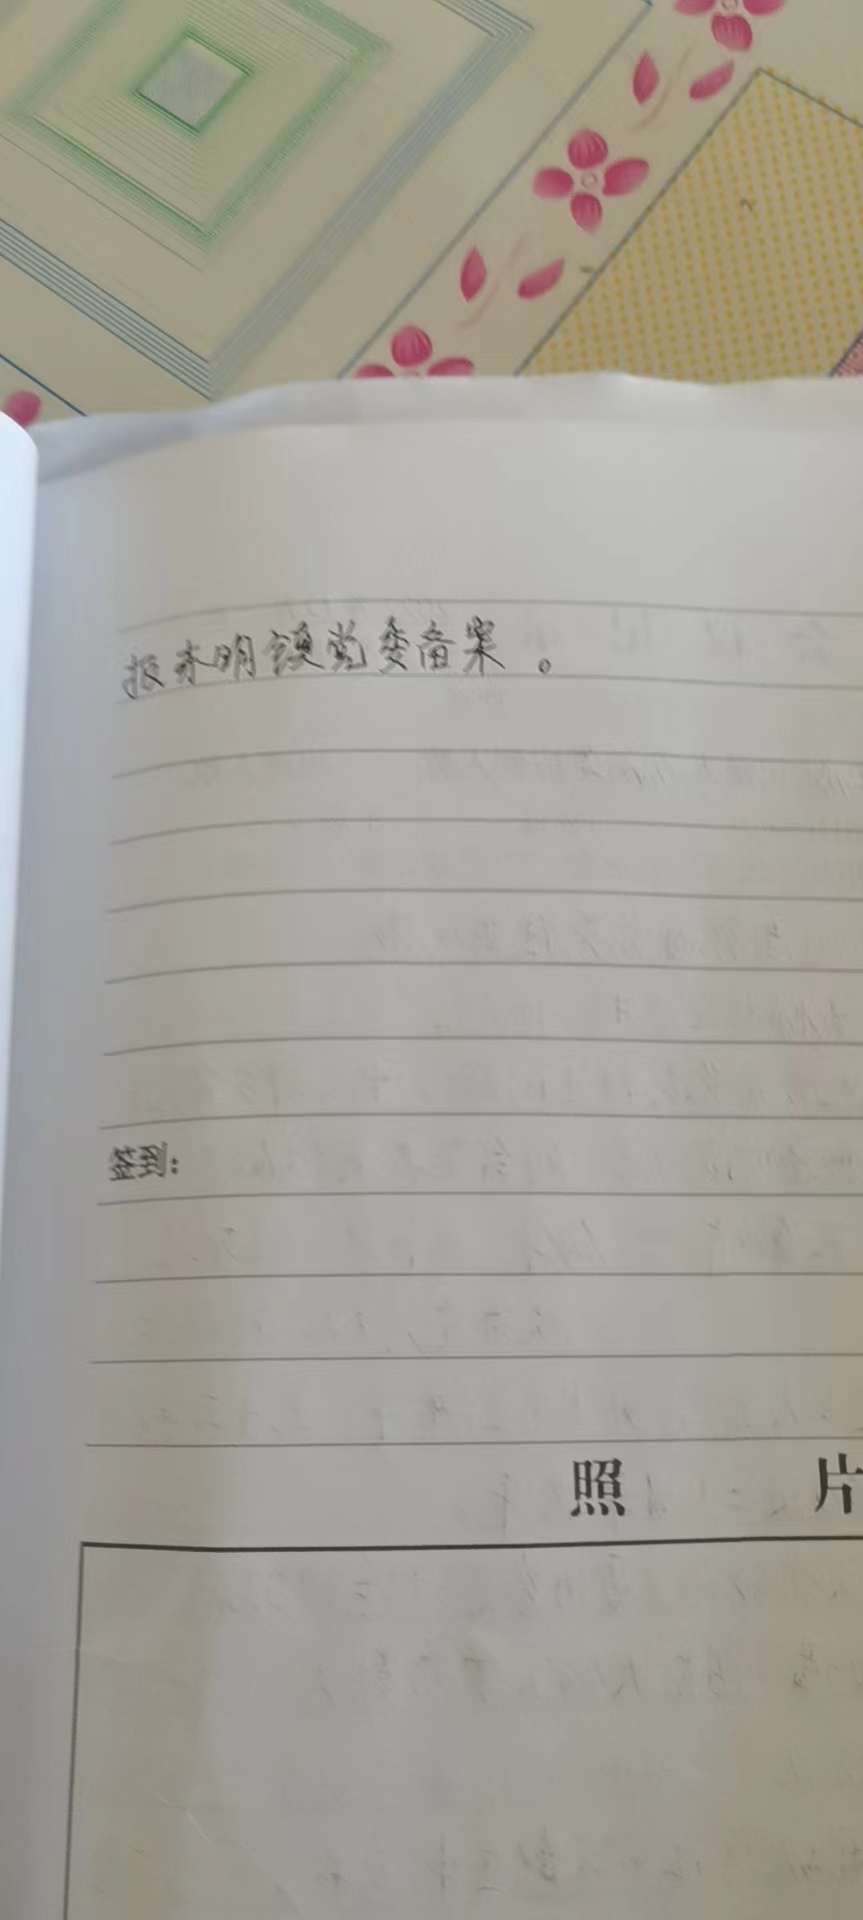 报永明镇党委备案。
签到:
照 片